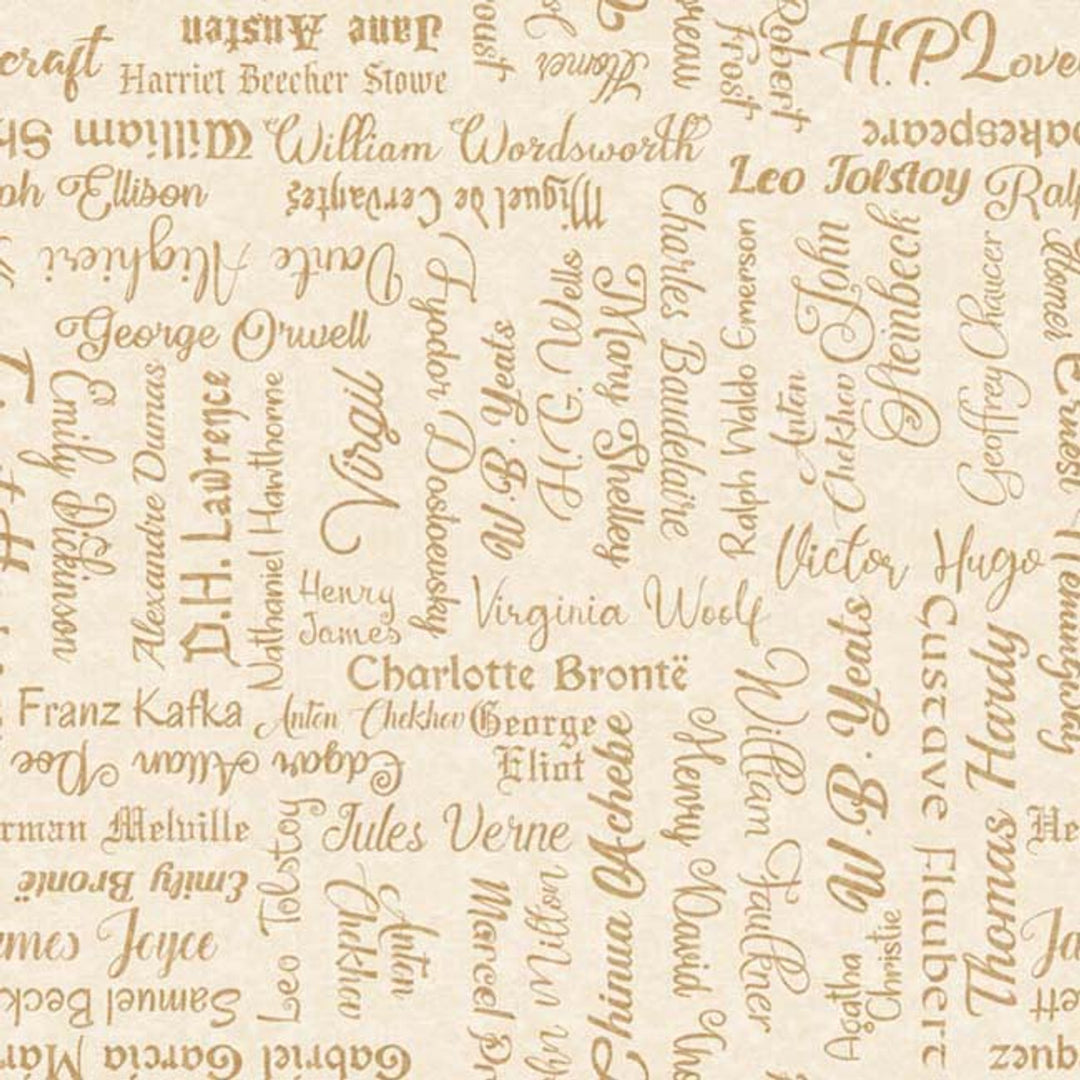 craft
Jane Austen
Harriet Beecher Stowe
oust
Homer
reau
Robert
Frost
H.P. Love
William Sh
William Wordsworth
akespeare
ph Ellison
Miguel de Cervantes
Leo Tolstoy
Ralp
Dante Alighieri
George Orwell
Fyodor Dostoevsky
W. B. Yeats
H.G. Wells
Mary Shelley
Charles Baudelaire
Ralph Waldo Emerson
Anton
Chekhov
John
Steinbeck
Geoffrey Chaucer
Homer
Ernest Hemingway
Emily Dickinson
Alexandre Dumas
D.H. Lawrence
Nathaniel Hawthorne
Virgil
Henry
James
Virginia Woolf
Victor Hugo
Charlotte Brontë
Franz Kafka
Anton Chekhov
George
Eliot
Edgar Allan Poe
rman Melville
Jules Verne
Emily Brontë
Leo Tolstoy
Anton
Chekhov
Marcel Pr
hn Milton
Chinua Achebe
Henry David Tho
William Faulkner
W. B. Yeats
Agatha
Christie
Gustave Flaubert
Thomas Hardy
He
ames Joyce
Ja
Samuel Beck
ett
Gabriel Garcia Mar
quez